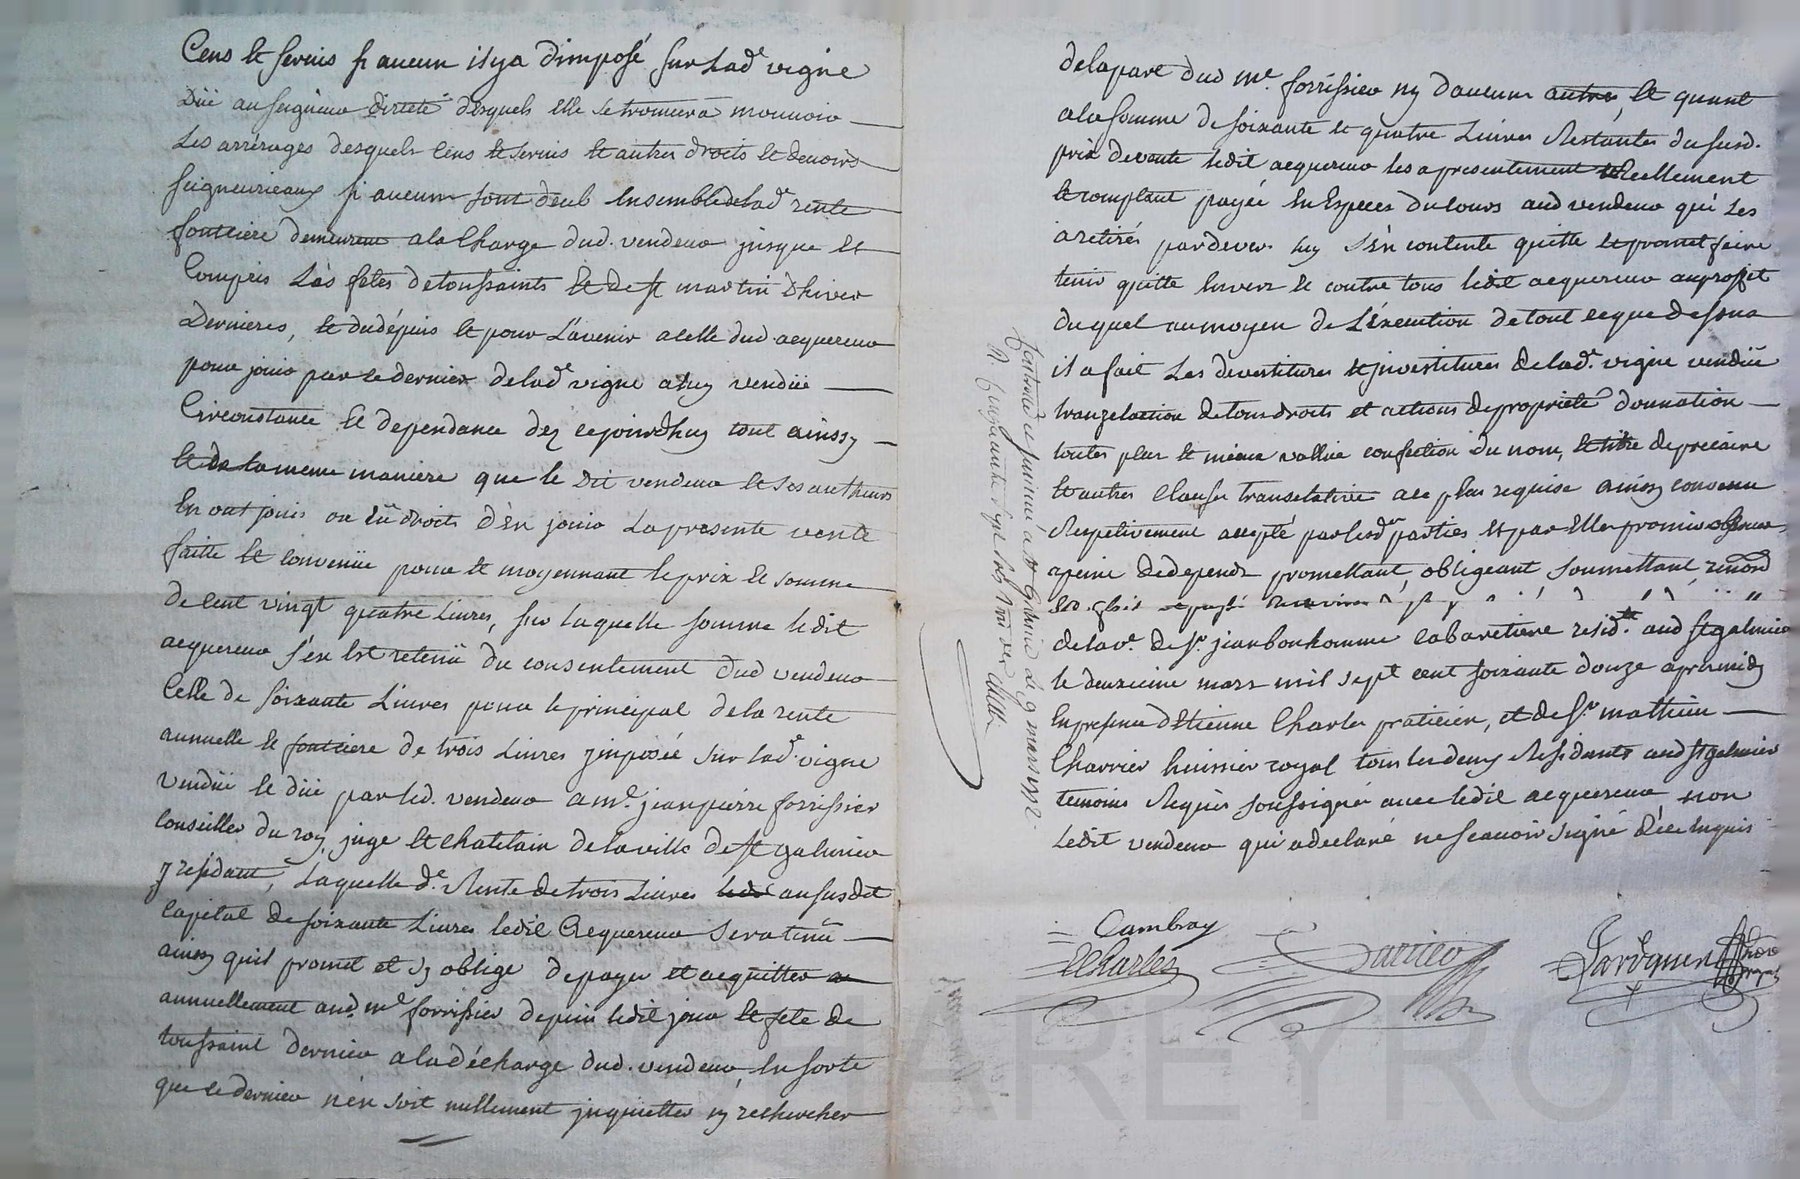 Cens et servis si aucun il y a d'imposé sur lade vigne
Düe au seigneur directe desquels elle se trouvera mouvoir
Les arrérages desquels Cens et servis et autres droits et devoirs
seigneurieaux si aucuns sont deub Ensemble de lade rente
fonticiere demeurent a la Charge dud. vendeur jusque et
Compris Lès fetes de toussaints et de st martin d'hiver
Dernieres, et dudépuis et pour L'avenir a celle dud. acquereur
pour jouir par ce dernier de lade vigne a luy vendüe
Circonstance et dependance dez cejourdhuy tout ainssy
et de la meme maniere que le dit vendeur et ses autheurs
En ont jouis ou eü droits d'En jouir La presente vente
faitte et convenüe pour et moyennant le prix et somme
de Cent vingt quatre Livres, sur laquelle somme ledit
acquereur s'en Est retenü du consentement dud vendeur
Celle de soixante Livres pour le principal de la rente
annuelle et fonticiere de trois Livres jmposée sur lade vigne
vendüe et düe par led. vendeur a me. jean pierre forrissier
Conseiller du roy, juge et chatelain de la ville de st galmier
y résidant, Laquelle de. Rente de trois Livres au susdit
Capital de soixante Livres ledit acquereur sera tenü
ainsy quil promet et s'y oblige de payer et acquitter
annuellement aud. me forrissier depuis ledit jour et fete de
toussaint dernier a la décharge dud. vendeur, En sorte
que ce dernier n'én soit nullement jnquietter ny rechercher
de la part dud me. forrissier ny d'aucuns autres, et quant
a la somme de soixante et quatre Livres Restantes du susd.
prix de vente ledit acquereur les a presentement Réellement
et comptant payée En Especes du cours aud vendeur qui Les
a retirés pardever luy s'en contente quitte et promet faire
tenir quitte Envers et contre tous ledit acquereur au proffit
duquel au moyen de L'éxecution de tout ce que dessus
il a fait Les devestitures et jnvestitures de lade. vigne vendüe
tranzelaction de tous droits et actions de proprieté donnation
toutes plus et mieux vallüe confection du nom, et titre de precaire
et autres clauses translative a ce plus requise ainsy convenu
Respetivement accepté par lesd parties et par Elles promis observer
a peine de depends promettant, obligeant soumettant, renond
de la ve. de sr. jean bonhomme cabaretiere resid.te aud st galmier
le deuxieme mars mil sept cent soixante douze apresmidy
En presence d'Etienne Charles praticien, et de sr. mathieu
Charrier huissier royal tous les deux Residants aud st galmier
temoins Requis soussignés avec ledit acquereur, non
Ledit vendeur qui a declaré ne scavoir signé d'ce Enquis
Controllé a st Galmier le 9 mars 1772
Cambray
ECharles